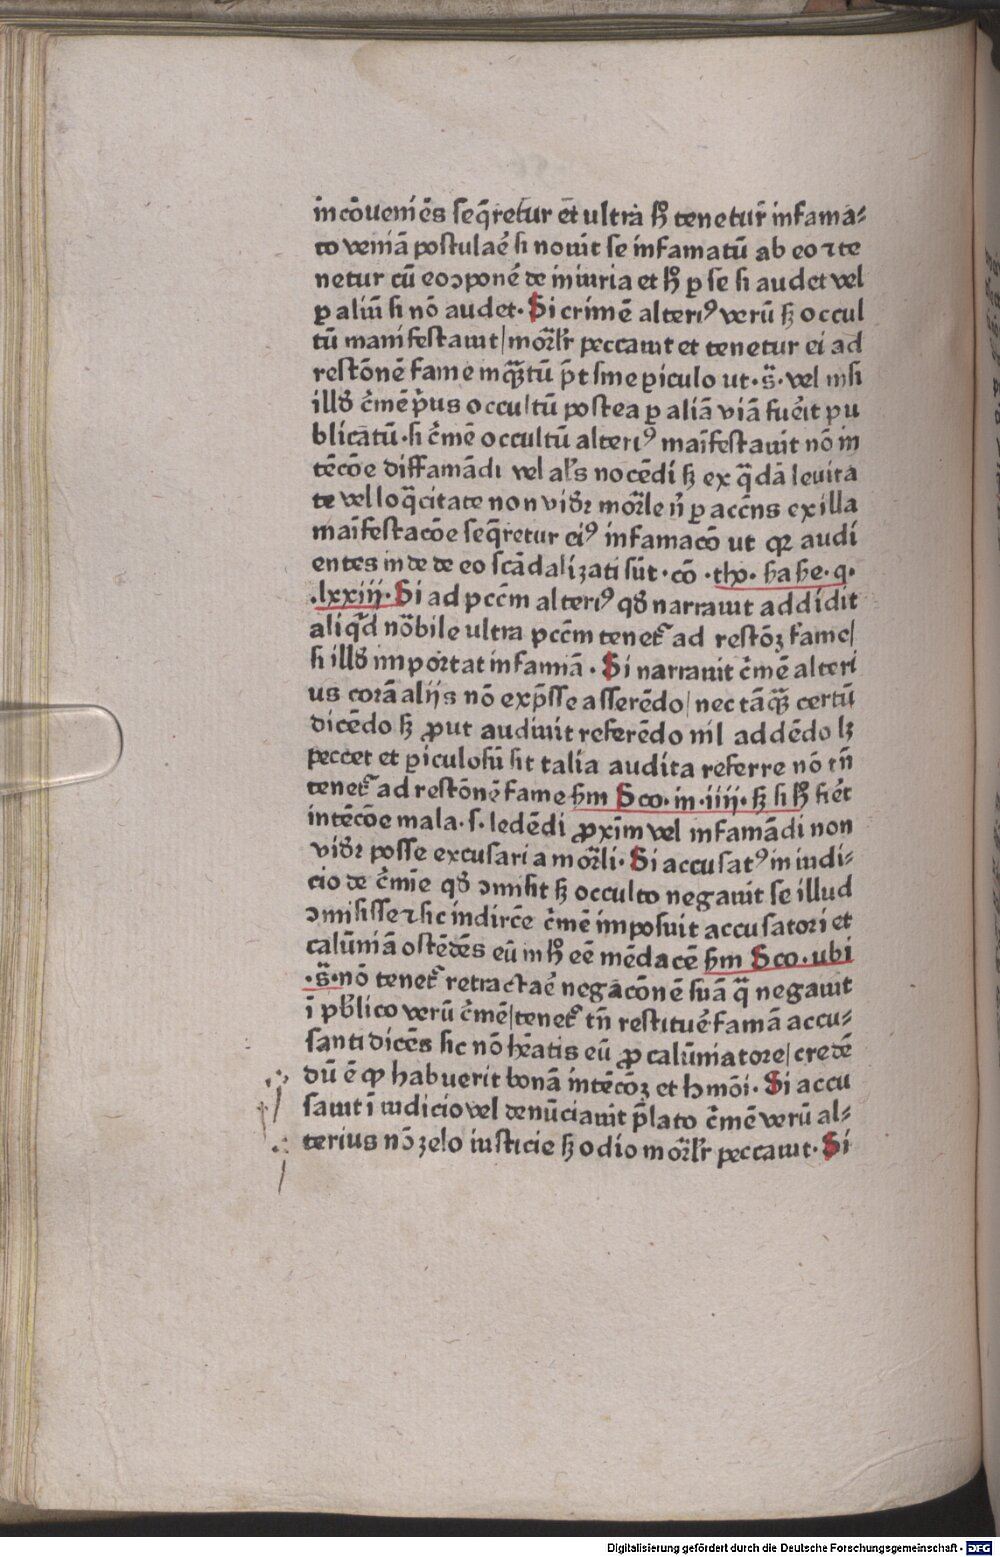 incōueniēs seq̄retur et̄ ultra hͦ tenetur̄ infama⸗
to veniā postulaē si nouit se infamatū ab eo ⁊ te
netur cū eo ↄponē de iniuria et hͦ ꝑ se si audet vel
ꝑ aliū si nō audet· Si crimē alteriꝰ verū sꝫ occul
tū manifestauit/ mor̄lr̄ peccauit et tenetur ei ad
restōnē fame inqᷓꝫtū pt̄ sine ꝑiculo ut· s̄· vel nisi
illđ c̄mē pͥus occultū postea ꝑ aliā viā fuīt pu
blicatū· si c̄mē occultū alteriꝰ maīfestauit nō in
tēcōe diffamādi vel al's nocēdi sꝫ ex qᷓdā leuita
te vel loqᷓcitate non viđꝛ mor̄le n̄ ꝑ accn̄s ex illa
maīfestacōe seq̄retur eiꝰ infamacō ut qꝛ audi
entes inde de eo scādalizati sūt· cō ·tho· ħa ħe· q·
·lxxiij· Si ad pccm̄ alteriꝰ qđ narrauit addidit
aliqͥd nōbile ultra pccm̄ tenet᷑ ad restōꝫ fame/
si illđ importat infamiā· Si narrauit c̄mē alteri
us corā alijs nō exp̄sse asserēdo/ nec tāqᷓꝫ certū
dicēdo sꝫ ꝓut audiuit referēdo nil addēdo lꝫ
peccet et ꝑiculosū sit talia audita referre nō tn̄
tenet᷑ ad restōnē fame ẜm Sco· in· iiij· sꝫ si hͦ fiēt
intēcōe mala· s· ledēdi ꝓxim̄ vel infamādi non
viđꝛ posse excusari a mor̄li· Si accusatꝰ in iudi⸗
cio de c̄mīe qđ ↄmisit sꝫ occulto negauit se illud
ↄmisisse ⁊ sic indirc̄e c̄mē imposuit accusatori et
calūniā ostēdēs eū in hͦ eē mēdacē ẜm Sco· ubi
·s̄· nō tenet᷑ retractaē negacōnē suā qᷓ negauit
ī pb̄lico verū c̄mē/ tenet᷑ tn̄ restituē famā accu⸗
santi dicēs sic nō hēatis eū ꝓ calūniatore/ credē
dū ē ꝙ habuerit bonā intēcōꝫ et hmōi· Si accu
sauit ī iudicio vel denūciauit p̄lato c̄mē verū al⸗
terius nō zelo iusticie sꝫ odio mor̄lr̄ peccauit· Si
Digitalisierung gefördert durch die Deutsche Forschungsgemeinschaft - DFG